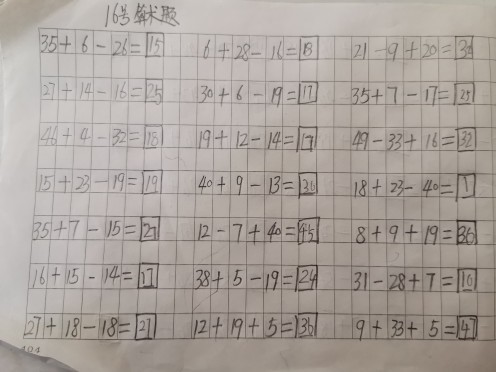 16号算术题
35+6-26=15 6+28-16=18 21-9+20=32
27+14-16=25 30+6-19=17 35+7-17=25
46+4-32=18 19+12-14=17 49-33+16=32
15+23-19=19 40+9-13=36 18+23-40=1
35+7-15=27 12-7+40=45 8+9+19=36
16+15-14=17 38+5-19=24 31-28+7=10
27+18-18=27 12+19+5=36 9+33+5=47